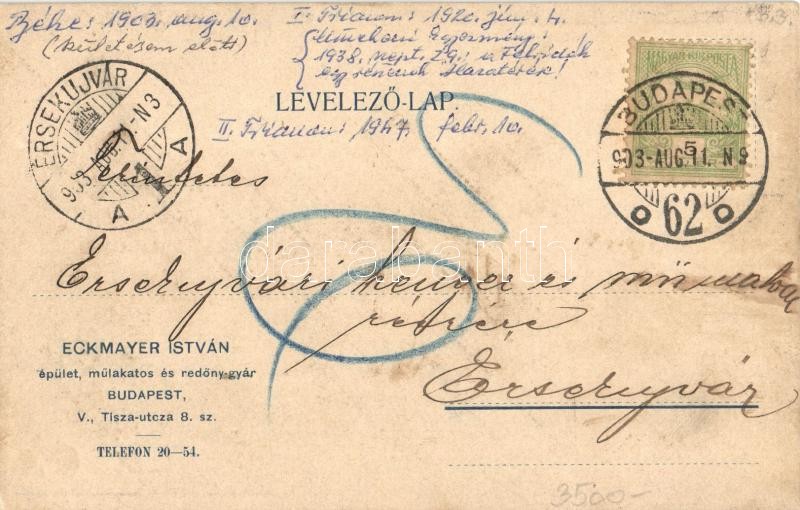 Béke: 1903. aug. 10.
(születésem előtt)
I. Trianon: 1920. jún. 4.
Müncheni Egyezmény:
1938. szept. 29: a Felvidék
egy részének
3.3.
MAGYAR KIR. POSTA
LEVELEZŐ-LAP.
II. Trianon: 1947. febr. 10.
ÉRSEKUJVÁR
903-AUG. 11-N 3
A
A
BUDAPEST
903-AUG. 11. N 9
62
5
Érsekujvári kenyér és műmalom
részére
Érsekujvár
darabanth
ECKMAYER ISTVÁN
épület, műlakatos és redőny-gyár
BUDAPEST,
V., Tisza-utcza 8. sz.
TELEFON 20—54.
3500-